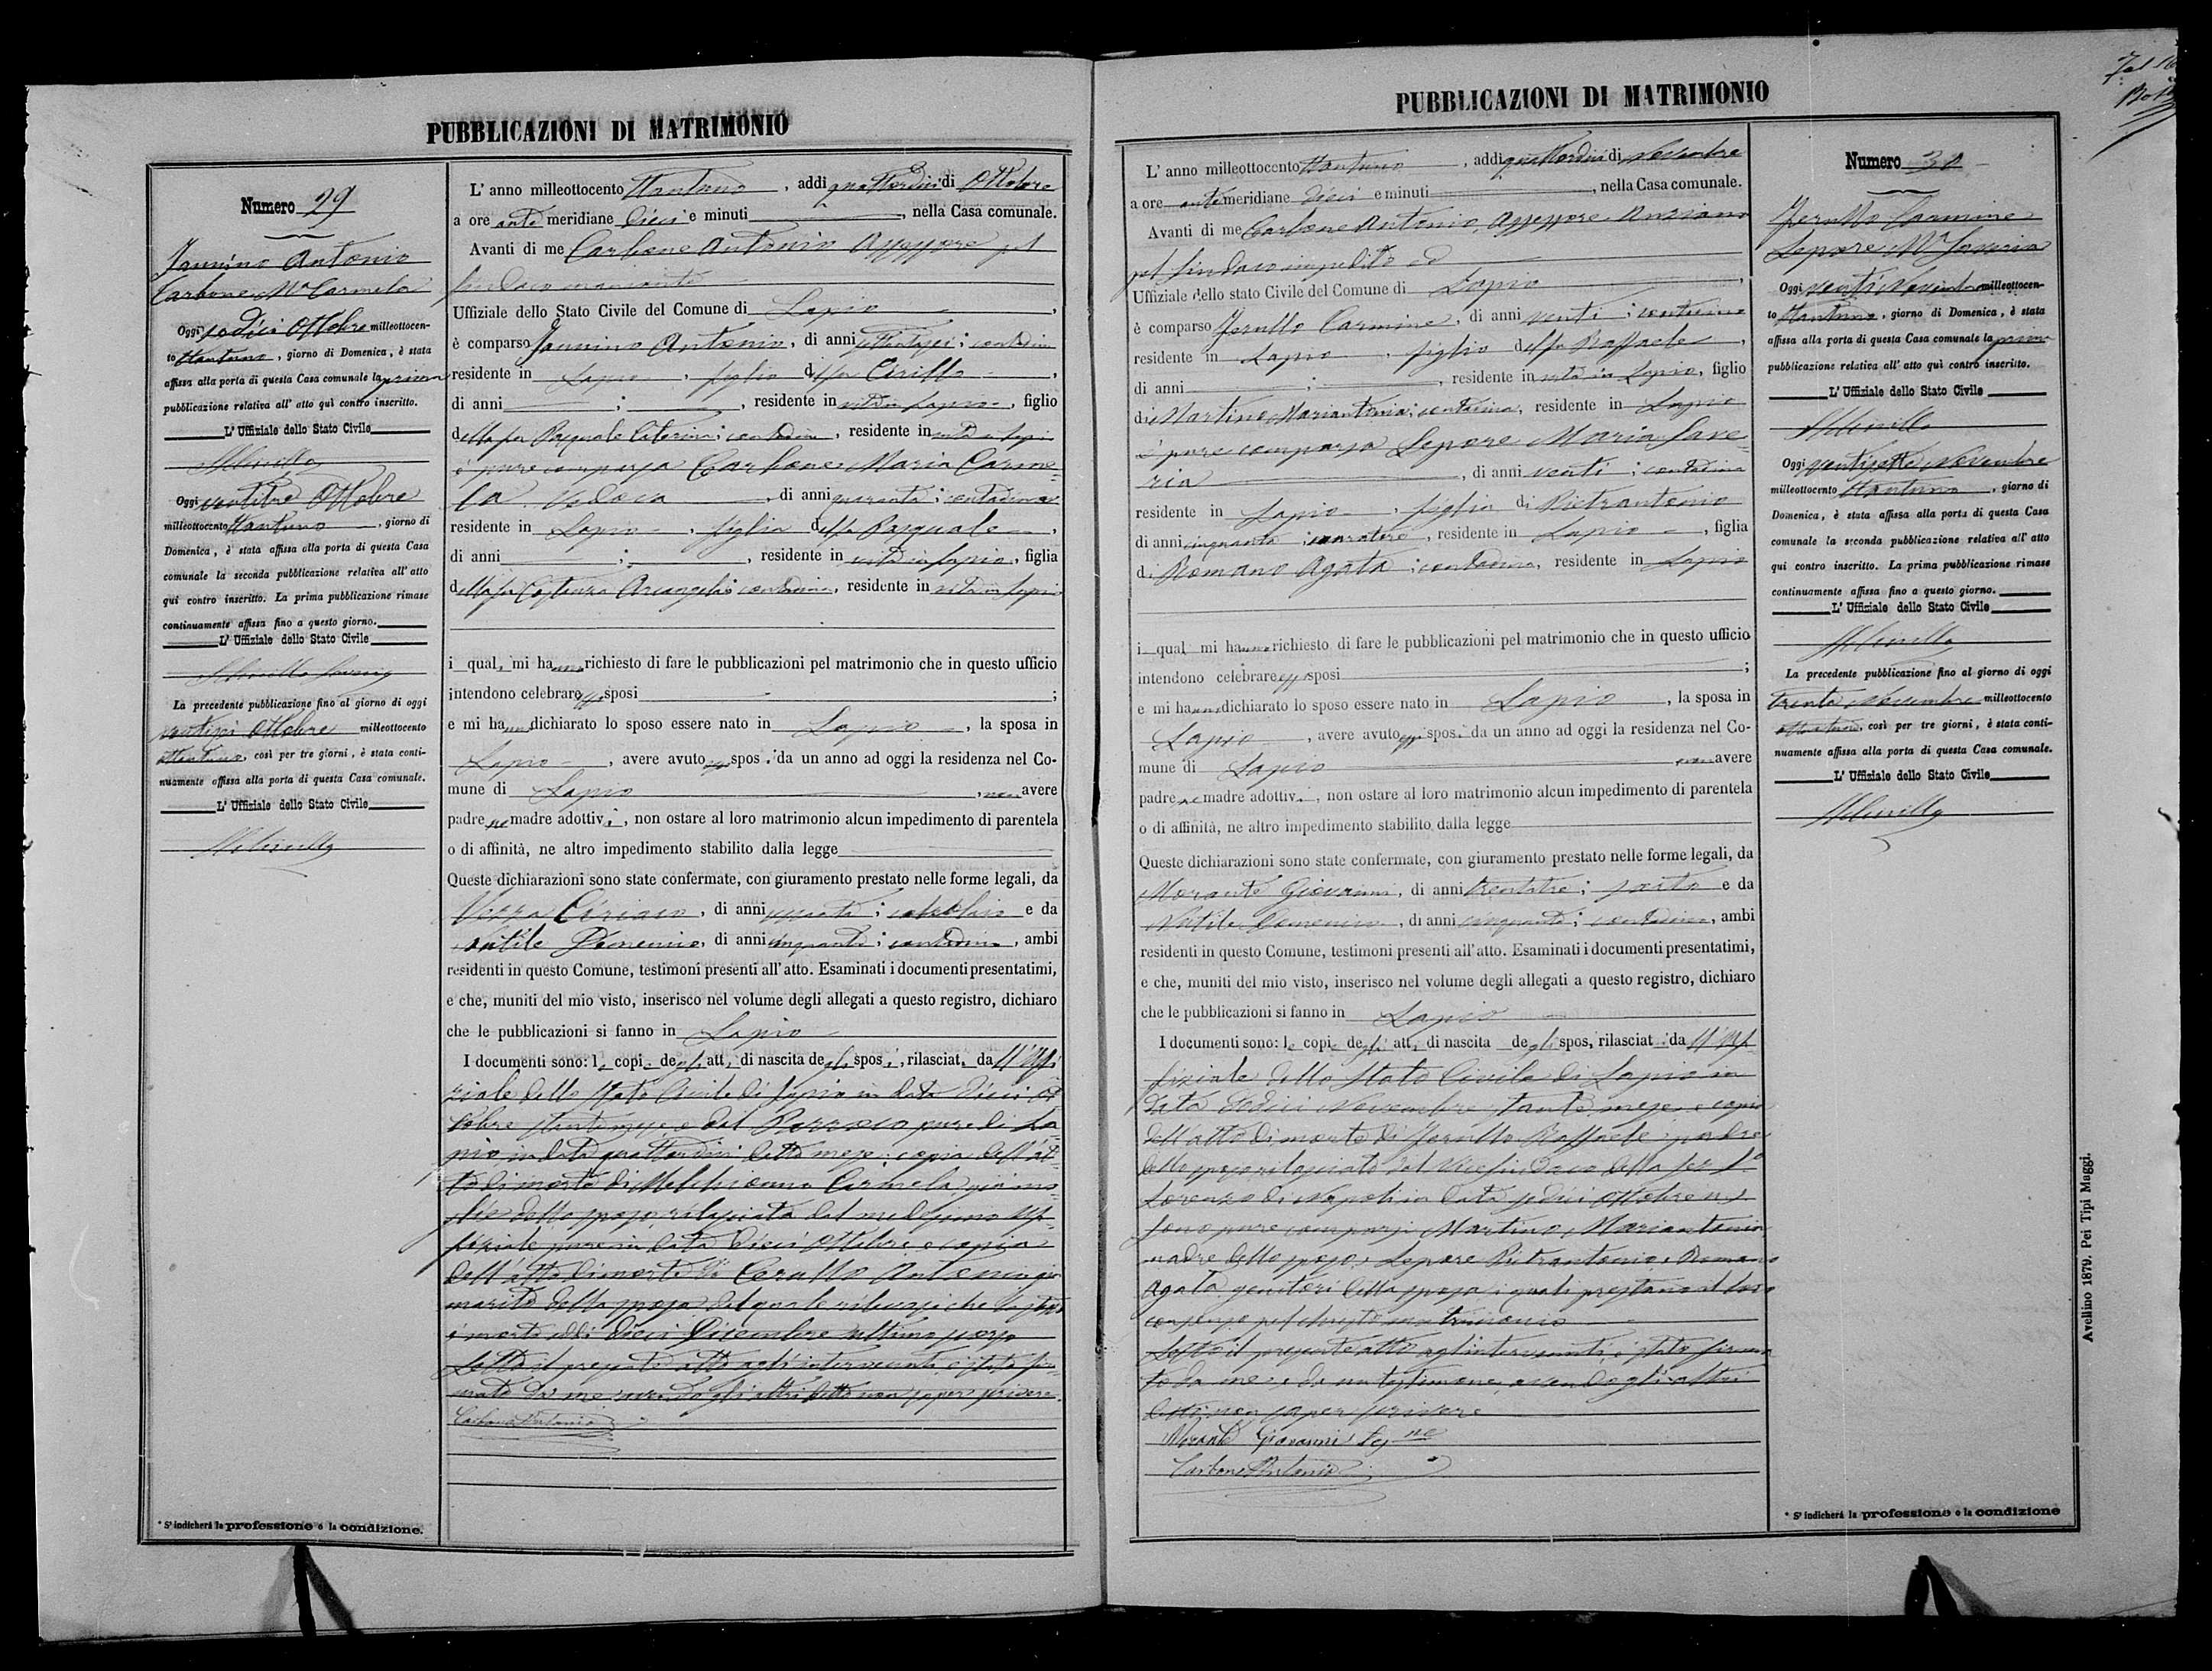 PUBBLICAZIONI DI MATRIMONIO
Numero 29
Jannino Antonio
Carbone Mª Carmela
Oggi sedici Ottobre milleottocen-
to ttantuno, giorno di Domenica, è stata
affissa alla porta di questa Casa comunale la prima
pubblicazione relativa all' atto quì contro inscritto.
L' Uffiziale dello Stato Civile
Oggi ventitre Ottobre
milleottocento ttantuno, giorno di
Domenica, è stata affissa alla porta di questa Casa
comunale la seconda pubblicazione relativa all' atto
qui contro inscritto. La prima pubblicazione rimase
continuamente affissa fino a questo giorno.
L' Uffiziale dello Stato Civile
La precedente pubblicazione fino al giorno di oggi
ventisei Ottobre milleottocento
ottantuno, così per tre giorni, è stata conti-
nuamente affissa alla porta di questa Casa comunale.
L' Uffiziale dello Stato Civile
* Si indicherà la professione o la condizione.
L' anno milleottocento ttantuno, addi quattordici di Ottobre
a ore ante meridiane dieci e minuti, nella Casa comunale.
Avanti di me Carbone Antonio Assessore pel
Sindaco
Uffiziale dello Stato Civile del Comune di Lapio,
è comparso Jannino Antonio, di anni ; contadino
residente in Lapio, figlio del fu Cirillo,
di anni ; , residente in vita in Lapio, figlio
della fu Pasquale Caterina; contadina, residente in vita in Lapio
è pure comparsa Carbone Maria Carme-
la vedova, di anni quaranta; contadina
residente in Lapio, figlia del fu Pasquale,
di anni ; , residente in vita in Lapio, figlia
della fu Costanza Arcangela; contadina, residente in vita in Lapio
i quali mi hanno richiesto di fare le pubblicazioni pel matrimonio che in questo ufficio
intendono celebrare essi sposi ;
e mi hanno dichiarato lo sposo essere nato in Lapio, la sposa in
Lapio, avere avuto essi sposi da un anno ad oggi la residenza nel Co-
mune di Lapio, non avere
padre ne madre adottivi, non ostare al loro matrimonio alcun impedimento di parentela
o di affinità, ne altro impedimento stabilito dalla legge
Queste dichiarazioni sono state confermate, con giuramento prestato nelle forme legali, da
Ciriaco, di anni ; calzolaio e da
Natile Domenico, di anni cinquanta; contadino, ambi
residenti in questo Comune, testimoni presenti all' atto. Esaminati i documenti presentatimi,
e che, muniti del mio visto, inserisco nel volume degli allegati a questo registro, dichiaro
che le pubblicazioni si fanno in Lapio
I documenti sono: le copie degli atti di nascita degli sposi, rilasciate dall' Uffi
ziale dello Stato Civile di Lapio in data dieci Ot
tobre stante mese e dal Parroco pure di La-
pio in data quattordici detto mese; copia dell' at-
to di morte di Melchionna Carmela già mo-
glie dello sposo rilasciata dal medesimo Uf-
fiziale pure in data dieci Ottobre e copia
dell' atto di morte di Cerullo Antonio già
marito della sposa dal quale rilevasi che lo stesso
è morto addì dieci Dicembre ultimo scorso
Letto il presente atto agli intervenuti è stato fir-
mato da me avendo gli altri detto non saper scrivere.
Carbone Antonio
PUBBLICAZIONI DI MATRIMONIO
L' anno milleottocento ttantuno, addi quattordici di Novembre
a ore antimeridiane dieci e minuti, nella Casa comunale.
Avanti di me Carbone Antonio, Assessore Anziano
pel Sindaco impedito ed
Uffiziale dello stato Civile del Comune di Lapio,
è comparso Jerullo Carmine, di anni venti; contadino
residente in Lapio, figlio del fu Raffaele,
di anni ; , residente in vita in Lapio, figlio
di Martino Mariantonia; contadina, residente in Lapio
è pure comparsa Lepore Maria Save-
ria, di anni venti; contadina
residente in Lapio, figlia di Pietrantonio
di anni cinquanta; muratore, residente in Lapio, figlia
di Romano Agata; contadina, residente in Lapio
i quali mi hanno richiesto di fare le pubblicazioni pel matrimonio che in questo ufficio
intendono celebrare essi sposi ;
e mi hanno dichiarato lo sposo essere nato in Lapio, la sposa in
Lapio, avere avuto essi sposi da un anno ad oggi la residenza nel Co-
mune di Lapio non avere
padre ne madre adottivi, non ostare al loro matrimonio alcun impedimento di parentela
o di affinità, ne altro impedimento stabilito dalla legge
Queste dichiarazioni sono state confermate, con giuramento prestato nelle forme legali, da
Morante Giovanni, di anni trentatre; sarto e da
Natile Domenico, di anni cinquanta; contadino, ambi
residenti in questo Comune, testimoni presenti all' atto. Esaminati i documenti presentatimi,
e che, muniti del mio visto, inserisco nel volume degli allegati a questo registro, dichiaro
che le pubblicazioni si fanno in Lapio
I documenti sono: le copie degli atti di nascita degli sposi, rilasciate dall' Uf-
fiziale dello Stato Civile di Lapio in
data Novembre stante mese e copia
dell' atto di morte di Jerullo Raffaele padre
dello sposo rilasciato dal Vicesindaco della S.
Lorenzo di Napoli in data sedici Ottobre
Sono pure comparsi Martino Mariantonia
madre dello sposo, Lepore Pietrantonio e Romano
Agata genitori della sposa i quali prestano il loro
consenso pel chiesto matrimonio
Letto il presente atto agl'intervenuti, è stato firma-
to da me e da un testimone avendo gli altri
detto non saper scrivere
Morante Giovanni
Carbone Antonio
Numero 30
Jerullo Carmine
Lepore Mª Saveria
Oggi venti Novembre milleottocen-
to ttantuno, giorno di Domenica, è stata
affissa alla porta di questa Casa comunale la prima
pubblicazione relativa all' atto quì contro inscritto.
L' Uffiziale dello Stato Civile
Oggi ventisette Novembre
milleottocento ttantuno, giorno di
Domenica, è stata affissa alla porta di questa Casa
comunale la seconda pubblicazione relativa all' atto
qui contro inscritto. La prima pubblicazione rimase
continuamente affissa fino a questo giorno.
L' Uffiziale dello Stato Civile
La precedente pubblicazione fino al giorno di oggi
trenta Novembre milleottocento
ottantuno, così per tre giorni, è stata conti-
nuamente affissa alla porta di questa Casa comunale.
L' Uffiziale dello Stato Civile
* Si indicherà la professione o la condizione
Avellino 1879. Pei Tipi Maggi.